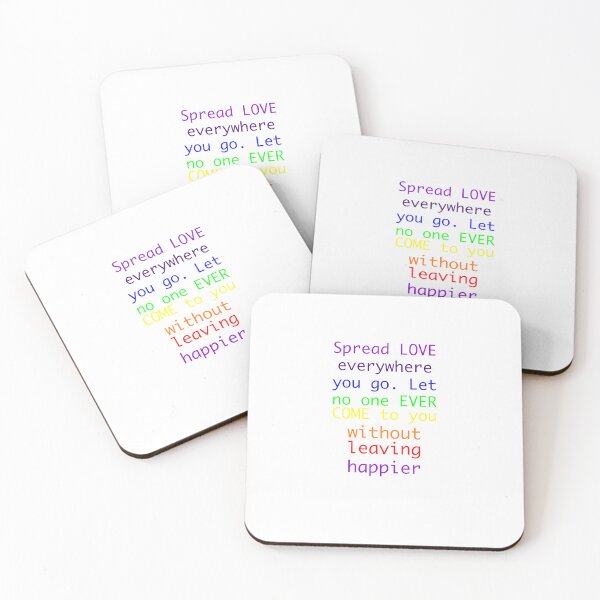 Spread LOVE
everywhere
you go. Let
no one EVER
COME to you
Spread LOVE
everywhere
you go. Let
no one EVER
COME to you
without
leaving
happier
Spread LOVE
everywhere
you go. Let
no one EVER
COME to you
without
leaving
happier
Spread LOVE
everywhere
you go. Let
no one EVER
COME to you
without
leaving
happier